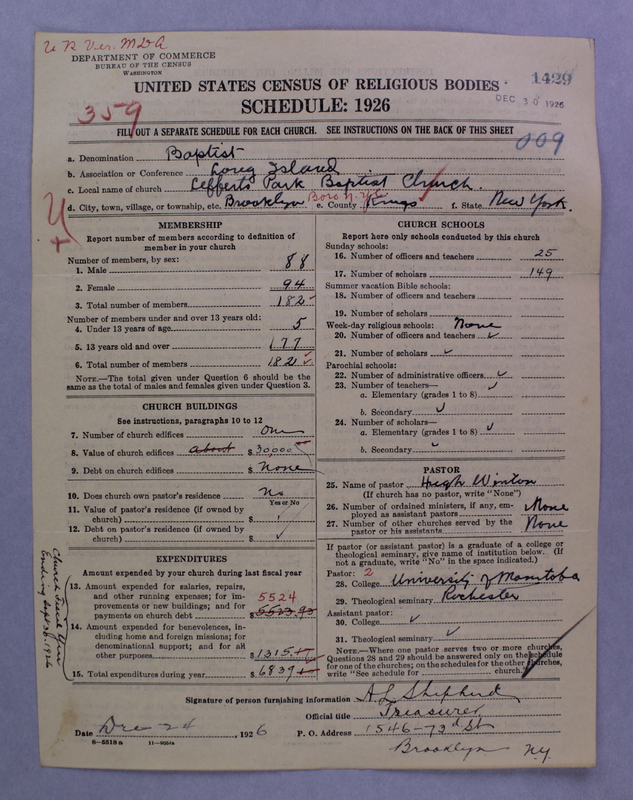 U R Ver. MDA
DEPARTMENT OF COMMERCE
BUREAU OF THE CENSUS
WASHINGTON
UNITED STATES CENSUS OF RELIGIOUS BODIES
SCHEDULE: 1926
1429
DEC 30 1926
359
FILL OUT A SEPARATE SCHEDULE FOR EACH CHURCH. SEE INSTRUCTIONS ON THE BACK OF THIS SHEET
009
a. Denomination Baptist
b. Association or Conference Long Island
c. Local name of church Lefferts Park Baptist Church.
d. City, town, village, or township, etc. Brooklyn Boro N.Y.C. e. County Kings f. State New York.
MEMBERSHIP
Report number of members according to definition of
member in your church
Number of members, by sex:
1. Male 88
2. Female 94
3. Total number of members 182
Number of members under and over 13 years old:
4. Under 13 years of age 5
5. 13 years old and over 177
6. Total number of members 182
NOTE.—The total given under Question 6 should be the
same as the total of males and females given under Question 3.
CHURCH BUILDINGS
See instructions, paragraphs 10 to 12
7. Number of church edifices One
8. Value of church edifices about $ 30,000
9. Debt on church edifices $ None
10. Does church own pastor's residence No
Yes or No
11. Value of pastor's residence (if owned by
church) $
12. Debt on pastor's residence (if owned by
church) $
EXPENDITURES
Amount expended by your church during last fiscal year
13. Amount expended for salaries, repairs,
and other running expenses; for im-
provements or new buildings; and for
payments on church debt $ 5524 5523.93
14. Amount expended for benevolences, in-
cluding home and foreign missions; for
denominational support; and for all
other purposes $ 1315
15. Total expenditures during year $ 6839
Church Fiscal Year
Ending Sept 30, 1926
CHURCH SCHOOLS
Report here only schools conducted by this church
Sunday schools:
16. Number of officers and teachers 25
17. Number of scholars 149
Summer vacation Bible schools:
18. Number of officers and teachers
19. Number of scholars
Week-day religious schools: None
20. Number of officers and teachers
21. Number of scholars
Parochial schools:
22. Number of administrative officers
23. Number of teachers—
a. Elementary (grades 1 to 8)
b. Secondary
24. Number of scholars—
a. Elementary (grades 1 to 8)
b. Secondary
PASTOR
25. Name of pastor Hugh Winton
(If church has no pastor, write "None")
26. Number of ordained ministers, if any, em-
ployed as assistant pastors None
27. Number of other churches served by the
pastor or his assistants None
If pastor (or assistant pastor) is a graduate of a college or
theological seminary, give name of institution below. (If
not a graduate, write "No" in the space indicated.)
Pastor: 2
28. College University of Manitoba
29. Theological seminary Rochester
Assistant pastor:
30. College
31. Theological seminary
NOTE.—Where one pastor serves two or more churches,
Questions 28 and 29 should be answered only on the schedule
for one of the churches; on the schedules for the other churches,
write "See schedule for church."
Signature of person furnishing information A L Shepherd
Official title Treasurer
Date Dec 24, 1926 P. O. Address 1546-73rd St
8-5518a 11-9554a
Brooklyn N.Y.